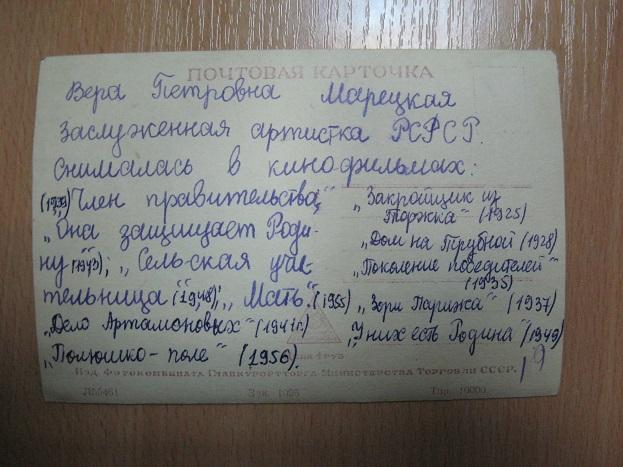 ПОЧТОВАЯ КАРТОЧКА
Вера Петровна Марецкая
Заслуженная артистка РСФСР.
Снималась в кинофильмах:
(1939) „Член правительства",
„Она защищает Роди-
ну" (1943); „Сельская учи-
тельница" (1948); „Мать". (1955)
„Дело Артамоновых" (1941г.)
„Полюшко-поле" (1956).
„Закройщик из
Торжка" (1925)
„Дом на Трубной (1928)
„Поколение победителей"
(1935)
„Зори Парижа" (1937)
„У них есть Родина" (1949)
19
Изд. Фотокомбината Главкурортторга Министерства Торговли СССР.
Тир. 10000